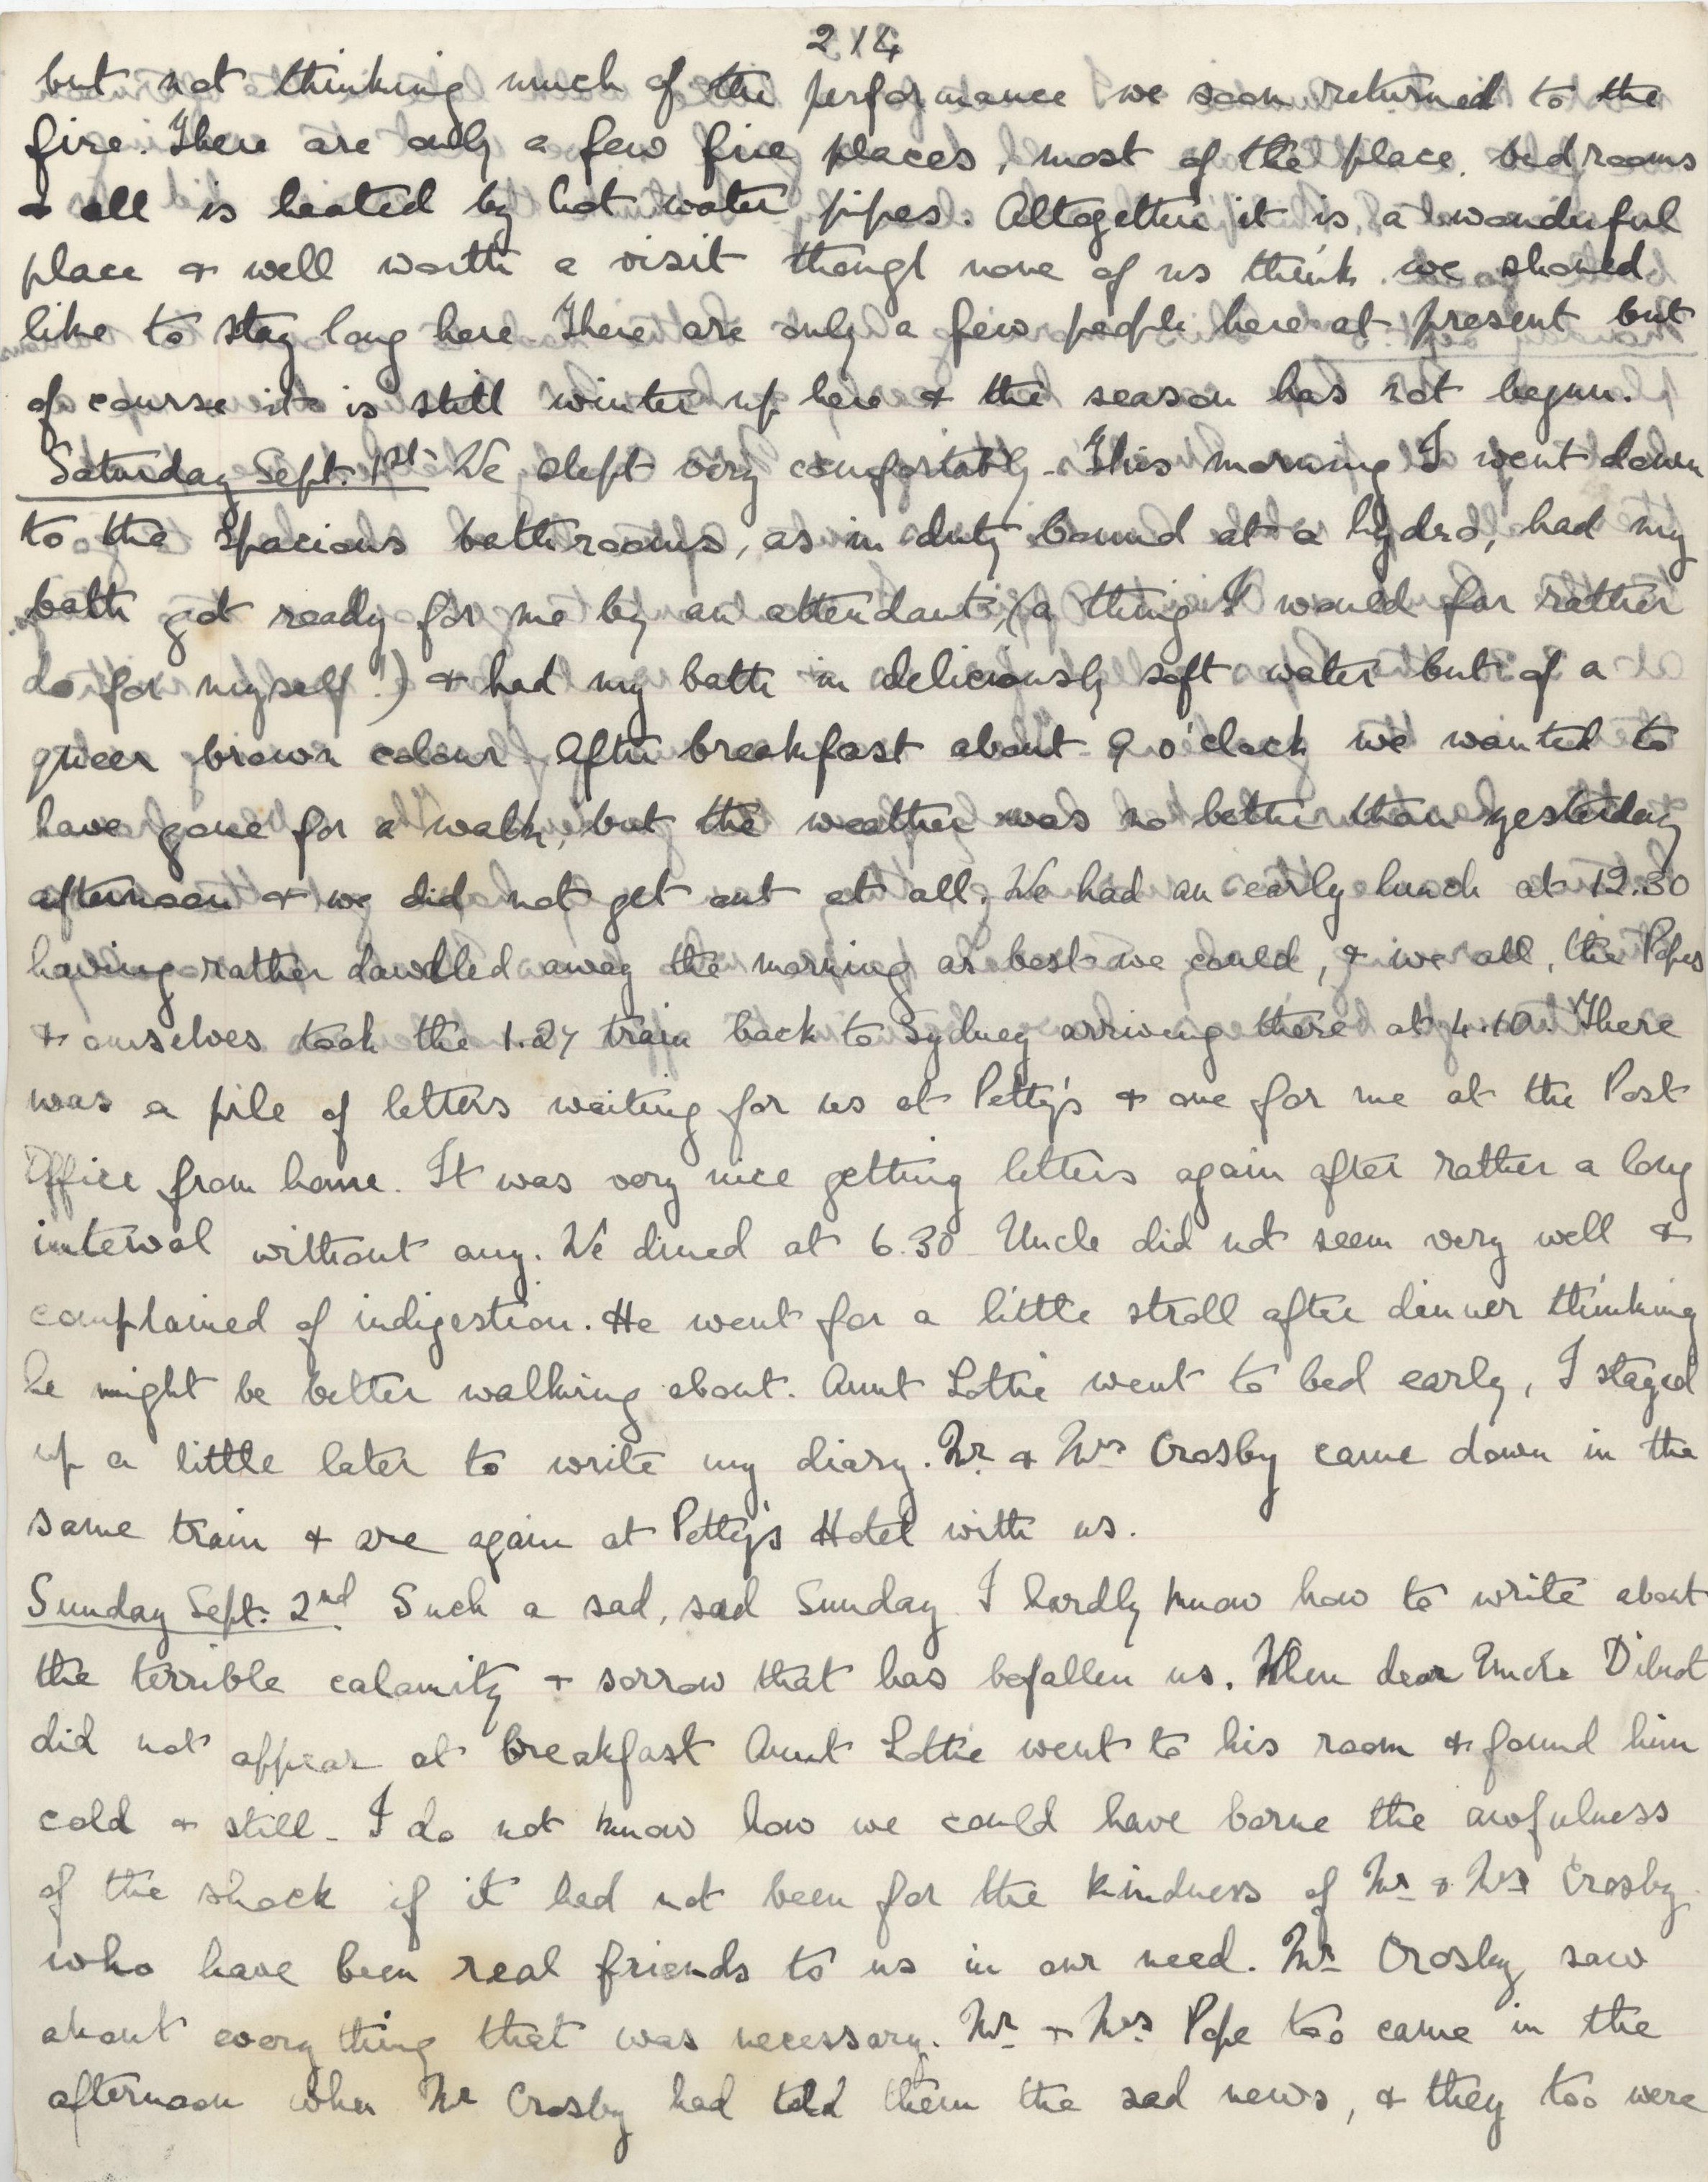 214
but not thinking much of the performance we soon returned to the
fire. There are only a few fire places, most of the place, bedrooms
& all is heated by hot water pipes. Altogether it is a wonderful
place & well worth a visit though none of us think we should
like to stay long here. There are only a few people here at present but
of course it is still winter up here & the season has not begun.
Saturday Sept. 1st We slept very comfortably. This morning I went down
to the spacious bathrooms, as in duty bound at a hydro, had my
bath got ready for me by an attendant, (a thing I would far rather
do for myself!) & had my bath in deliciously soft water but of a
queer brown colour. After breakfast about 9 o'clock we wanted to
have gone for a walk, but the weather was no better than yesterday
afternoon & we did not get out at all. We had an early lunch at 12.30
having rather dawdled away the morning as best we could, & we all, the Popes
& ourselves took the 1.27 train back to Sydney arriving there at 4.10. There
was a pile of letters waiting for us at Petty's & one for me at the Post
Office from home. It was very nice getting letters again after rather a long
interval without any. We dined at 6.30 Uncle did not seem very well &
complained of indigestion. He went for a little stroll after dinner thinking
he might be better walking about. Aunt Lottie went to bed early, I stayed
up a little later to write my diary. Mr. & Mrs Crosby came down in the
same train & are again at Petty's Hotel with us.
Sunday Sept. 2nd Such a sad, sad Sunday I hardly know how to write about
the terrible calamity & sorrow that has befallen us. When dear Uncle
did not appear at breakfast Aunt Lottie went to his room & found him
cold & still. I do not know how we could have borne the awfulness
of the shock if it had not been for the kindness of Mr & Mrs Crosby
who have been real friends to us in our need. Mr Crosby saw
about every thing that was necessary. Mr & Mrs Pope too came in the
afternoon when Mr Crosby had told them the sad news, & they too were